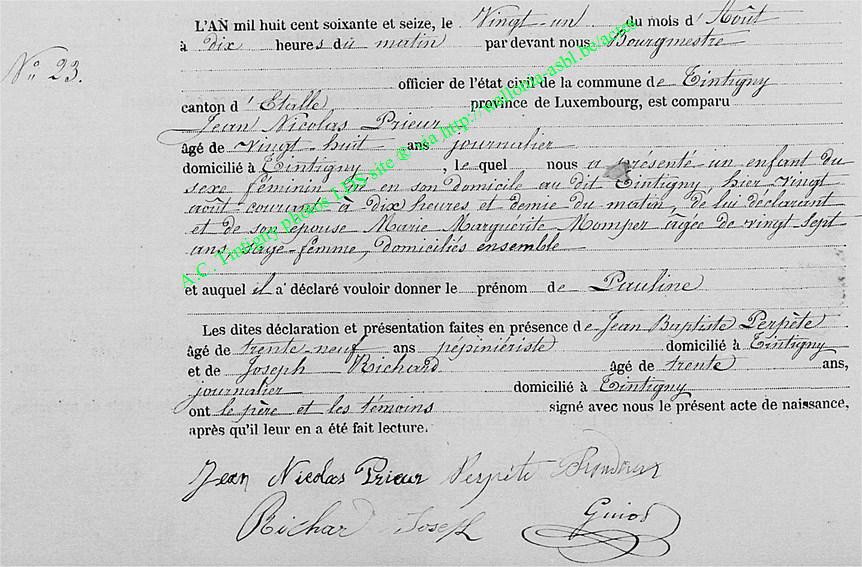 L'AN mil huit cent soixante et seize, le Vingt-un du mois d'Août
à dix heures du matin par devant nous Bourgmestre
N° 23.
officier de l'état civil de la commune de Tintigny
canton d'Etalle province de Luxembourg, est comparu
Jean Nicolas Prieur
âgé de vingt-huit ans journalier
domicilié à Tintigny, le quel nous a présenté un enfant du
sexe féminin né en son domicile au dit Tintigny, hier, vingt
août courant à dix heures et demie du matin, de lui déclarant
et de son épouse Marie Marguérite Momper âgée de vingt-sept
ans, sage-femme, domiciliés ensemble
et auquel il a déclaré vouloir donner le prénom de Pauline
Les dites déclaration et présentation faites en présence de Jean Baptiste Perpète
âgé de trente-neuf ans pépiniériste domicilié à Tintigny
et de Joseph Richard âgé de trente ans,
journalier domicilié à Tintigny
ont le père et les témoins signé avec nous le présent acte de naissance,
après qu'il leur en a été fait lecture.
Jean Nicolas Prieur Perpète
Richar Joseph
A.C. Tintigny photos LDS site ® via http://wallonia-asbl.be/actes